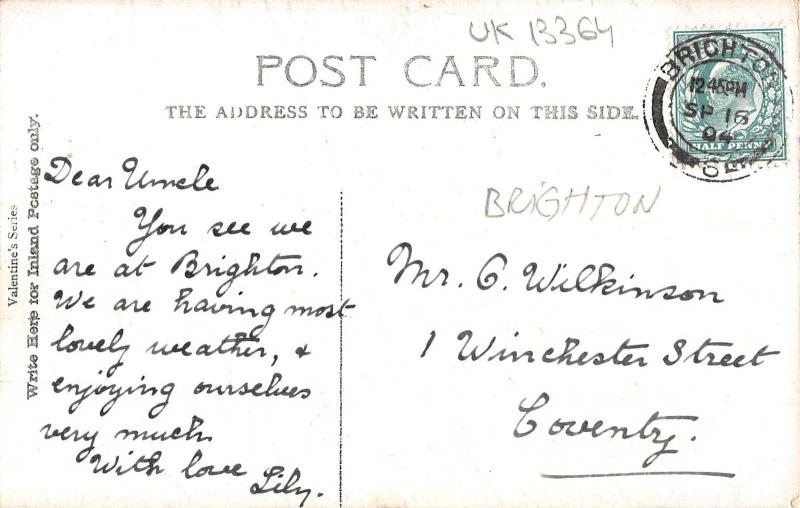 UK 13364
POST CARD.
THE ADDRESS TO BE WRITTEN ON THIS SIDE.
BRIGHTON
12 45PM
SP 16
04
HALF PENNY
Valentine's Series
Write Here for Inland Postage only.
Dear Uncle
You see we
are at Brighton.
We are having most
lovely weather, &
enjoying ourselves
very much.
With love
Lily.
BRIGHTON
Mr. G. Wilkinson
1 Winchester Street
Coventry.